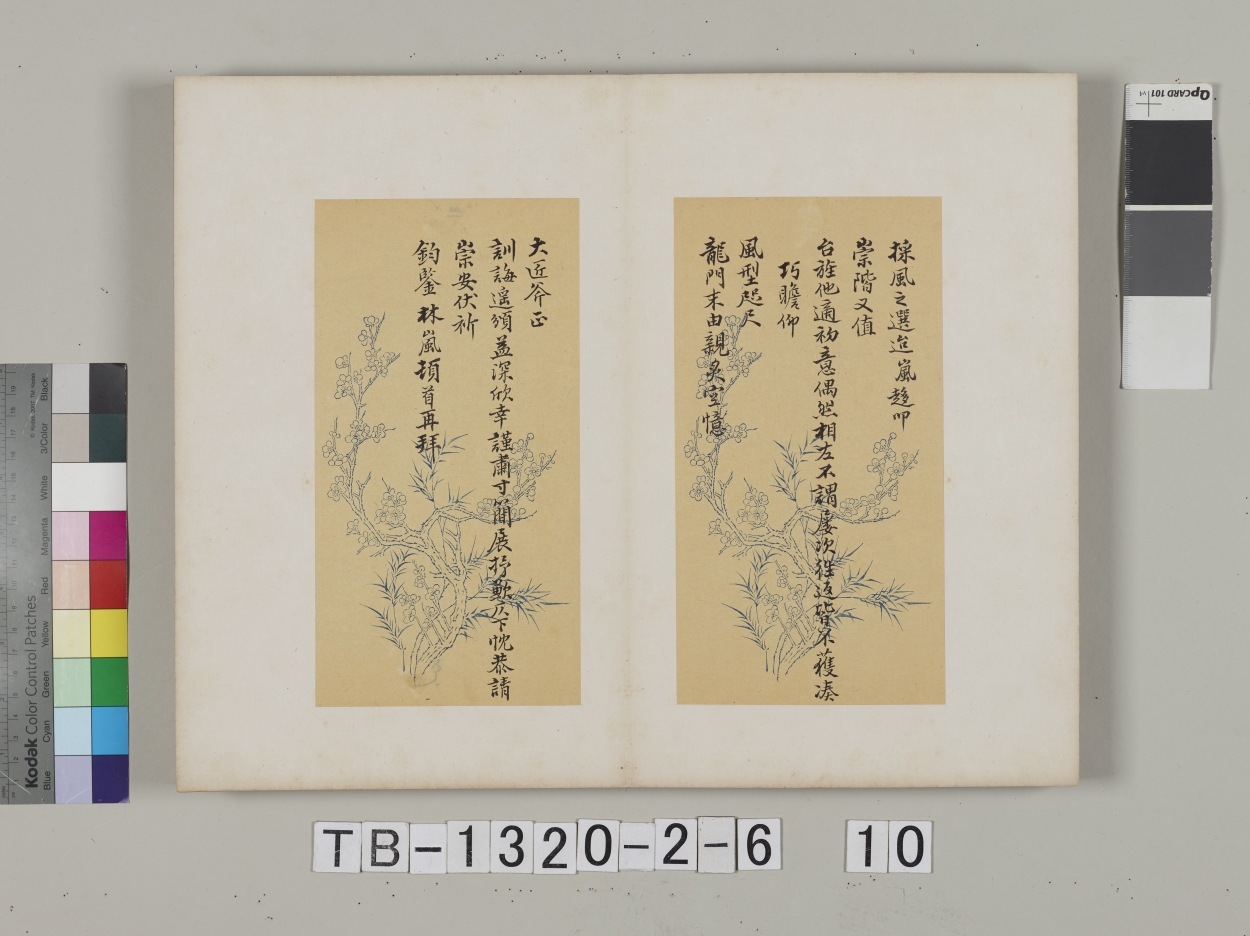 採風之選迨嵐趨叩
崇階又值
台旌他適初意偶然相左不謂屢次往返皆不獲湊
巧瞻仰
風型咫尺
龍門末由親炙空憶
大匠斧正
訓誨遥頒益深欣幸謹肅寸簡展抒歉仄下忱恭請
崇安伏祈
鈞鑒 林嵐頓首再拜
TB-1320-2-6 10
QPCARD 101 v1
Kodak Color Control Patches
Blue Cyan Green Yellow Red Magenta White 3/Color Black